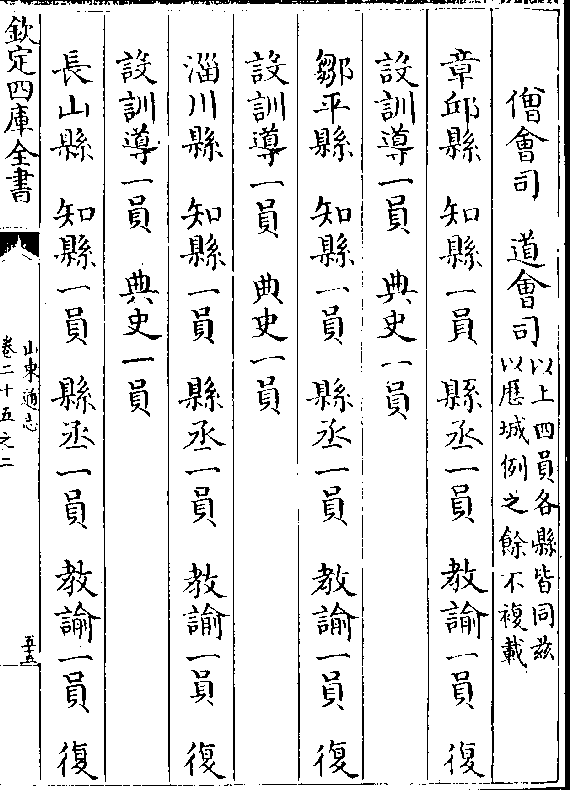 僧會司　道會司以上四員各縣皆同兹
以歴城例之餘不複載
章邱縣　知縣一員　縣丞一員　教諭一員　復
設訓導一員　典史一員
鄒平縣　知縣一員　縣丞一員　教諭一員　復
設訓導一員　典史一員
淄川縣　知縣一員　縣丞一員　教諭一員　復
設訓導一員　典史一員
長山縣　知縣一員　縣丞一員　教諭一員　復
欽定四庫全書
山東通志
卷二十五之二
五十五